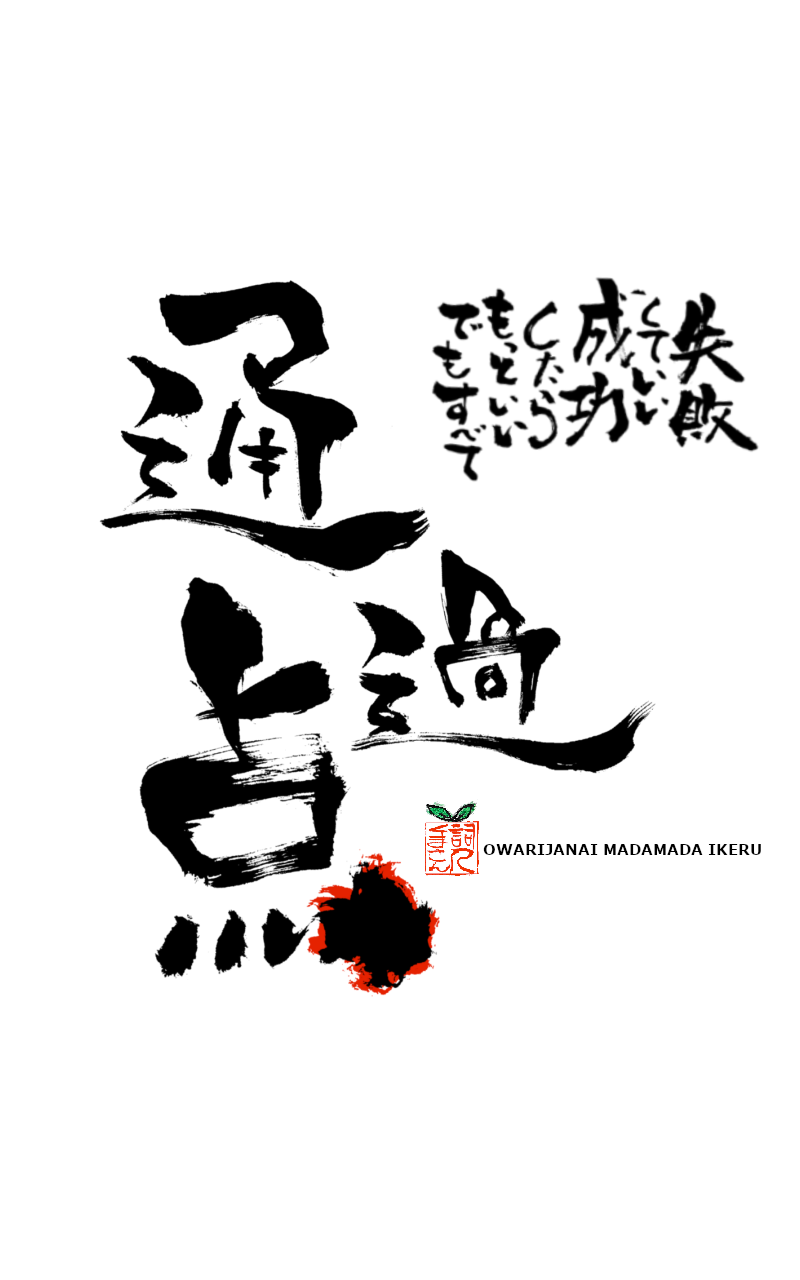 失敗
していい
成功
したら
もっといい
でもすべて
通過点
OWARIJANAI MADAMADA IKERU